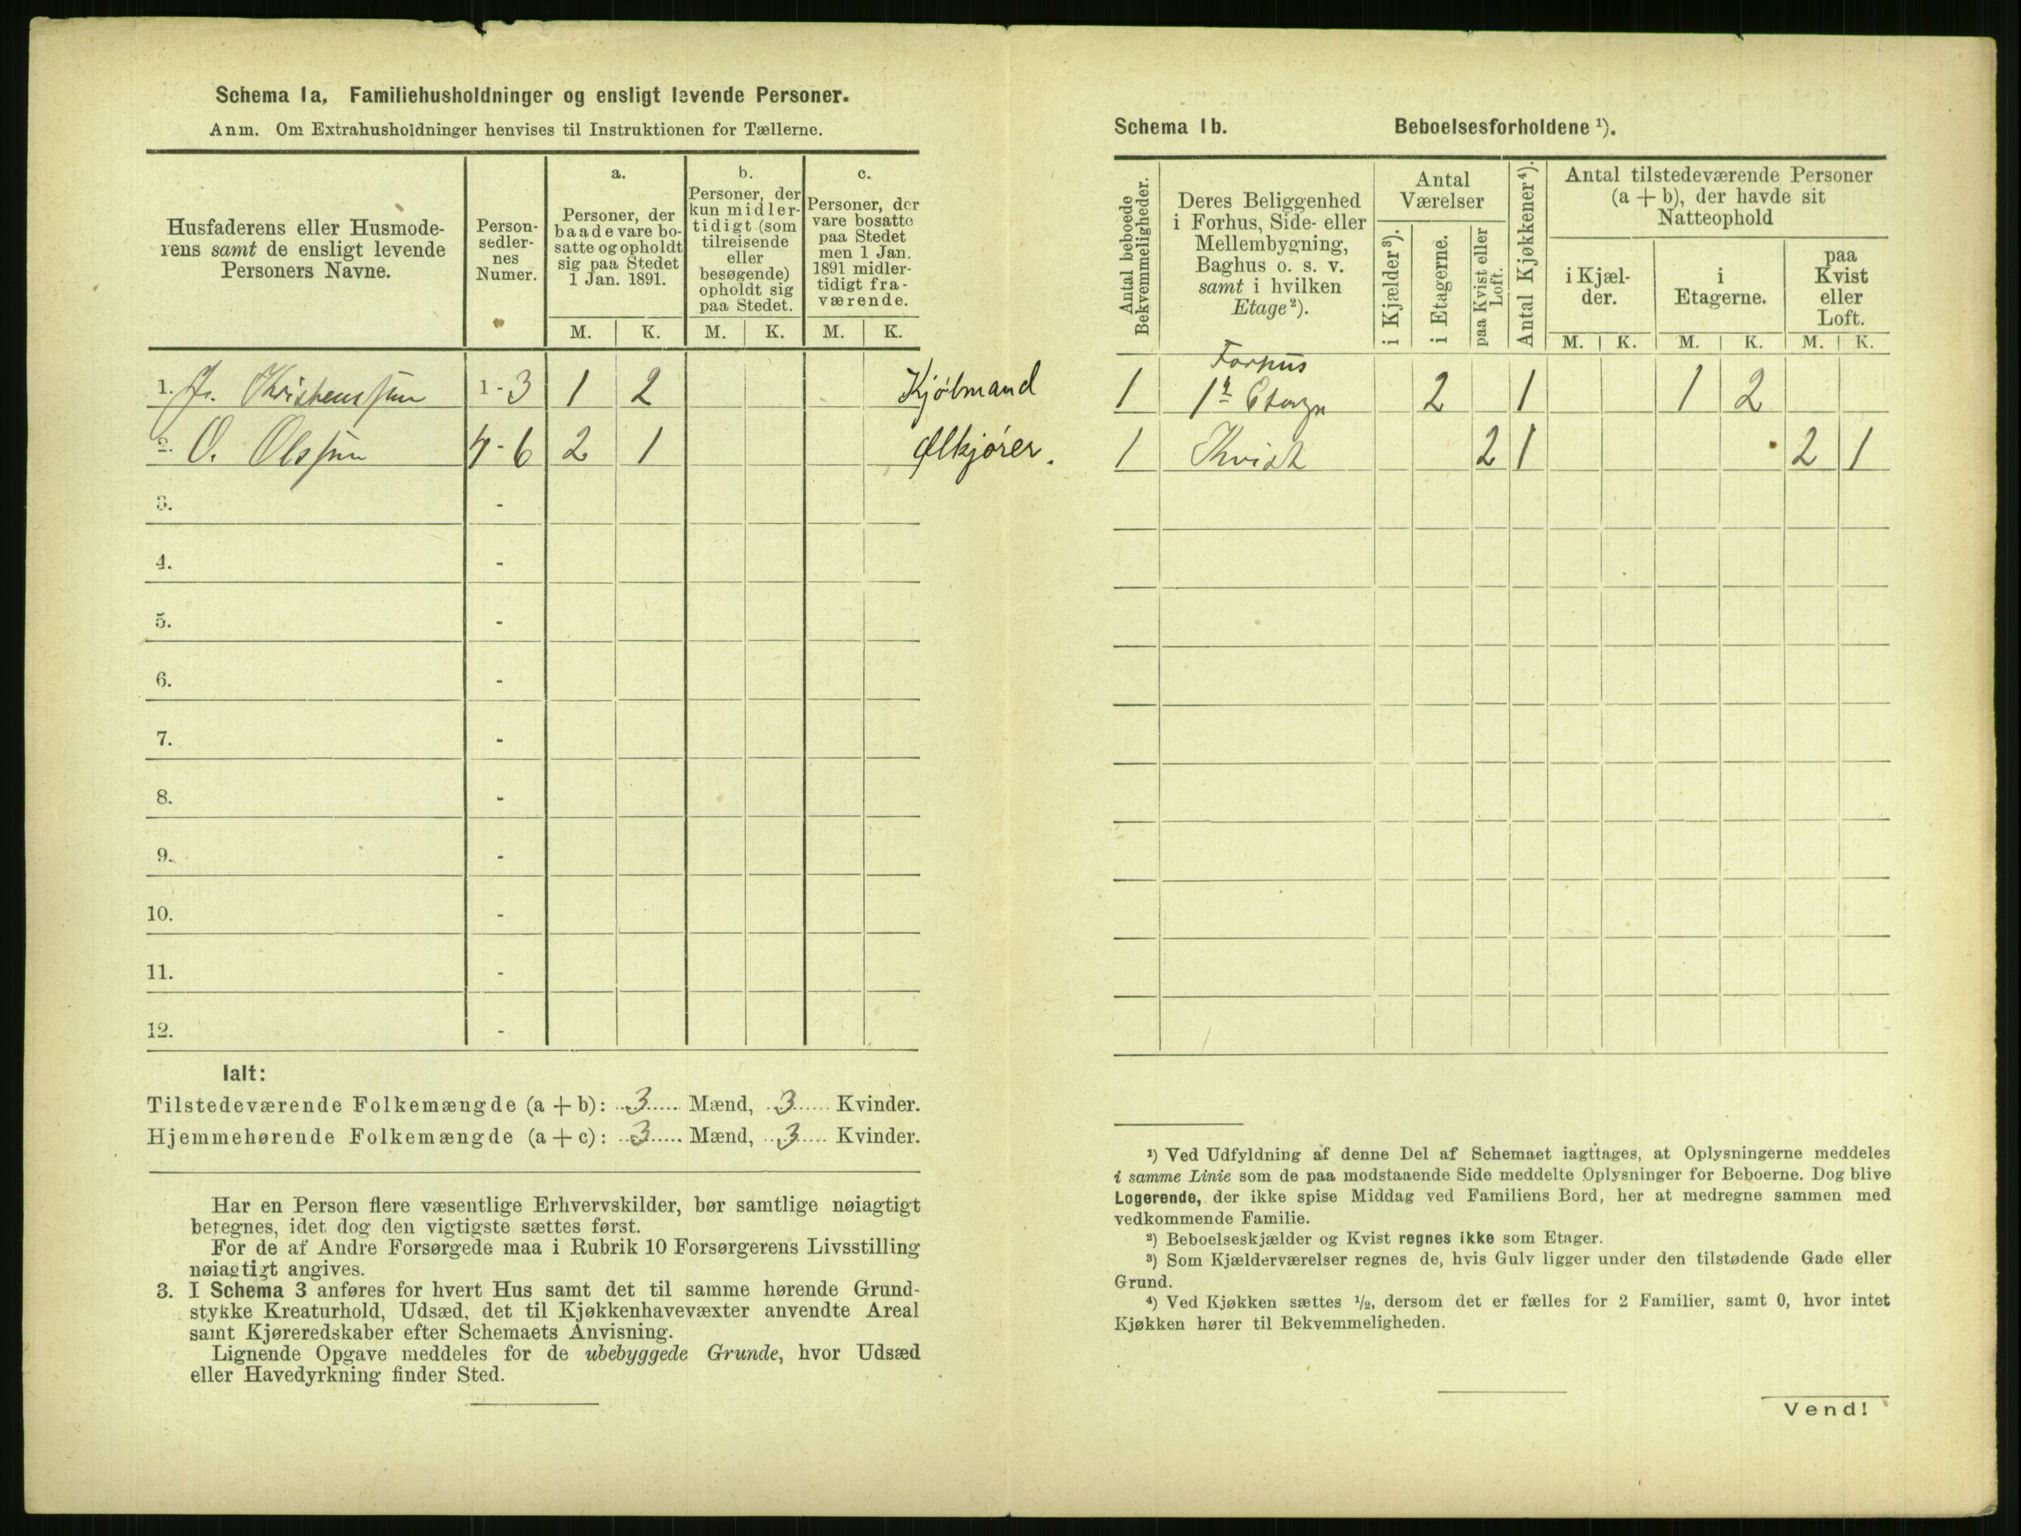 Schema 1a, Familiehusholdninger og ensligt levende Personer.
Anm. Om Extrahusholdninger henvises til Instruktionen for Tællerne.
Husfaderens eller Husmode-
rens samt de ensligt levende
Personers Navne.
Person-
sedler-
nes
Numer.
a.
Personer, der
baade vare bo-
satte og opholdt
sig paa Stedet
1 Jan. 1891.
b.
Personer, der
kun midler-
tidigt (som
tilreisende
eller
besøgende)
opholdt sig
paa Stedet.
c.
Personer, der
vare bosatte
paa Stedet
men 1 Jan.
1891 midler-
tidigt fra-
værende.
M. K. M. K. M. K.
1. Kristenssen 1-3 1 2 Kjølmand
2. O. Olssen 4-6 2 1 Ølkjører.
3. -
4. -
5. -
6. -
7. -
8. -
9. -
10. -
11. -
12. -
Ialt:
Tilstedeværende Folkemængde (a + b): 3 Mænd, 3 Kvinder.
Hjemmehørende Folkemængde (a + c): 3 Mænd, 3 Kvinder.
Har en Person flere væsentlige Erhvervskilder, bør samtlige nøiagtigt
betegnes, idet dog den vigtigste sættes først.
For de af Andre Forsørgede maa i Rubrik 10 Forsørgerens Livsstilling
nøiagtigt angives.
3. I Schema 3 anføres for hvert Hus samt det til samme hørende Grund-
stykke Kreaturhold, Udsæd, det til Kjøkkenhavevæxter anvendte Areal
samt Kjøreredskaber efter Schemaets Anvisning.
Lignende Opgave meddeles for de ubebyggede Grunde, hvor Udsæd
eller Havedyrkning finder Sted.
Schema 1b. Beboelsesforholdene ¹).
Antal beboede
Bekvemmeligheder.
Deres Beliggenhed
i Forhus, Side- eller
Mellembygning,
Baghus o. s. v.
samt i hvilken
Etage²).
Antal
Værelser
i Kjælder³).
i Etagerne.
paa Kvist eller
Loft.
Antal Kjøkkener⁴).
Antal tilstedeværende Personer
(a + b), der havde sit
Natteophold
i Kjæl-
der.
i
Etagerne.
paa
Kvist
eller
Loft.
M. K. M. K. M. K.
Forhus
1 1ste Etage 2 1 1 2
1 Kvist 2 1 2 1
¹) Ved Udfyldning af denne Del af Schemaet iagttages, at Oplysningerne meddeles
i samme Linie som de paa modstaaende Side meddelte Oplysninger for Beboerne. Dog blive
Logerende, der ikke spise Middag ved Familiens Bord, her at medregne sammen med
vedkommende Familie.
²) Beboelseskjælder og Kvist regnes ikke som Etager.
³) Som Kjælderværelser regnes de, hvis Gulv ligger under den tilstødende Gade eller
Grund.
⁴) Ved Kjøkken sættes ½, dersom det er fælles for 2 Familier, samt 0, hvor intet
Kjøkken hører til Bekvemmeligheden.
Vend!